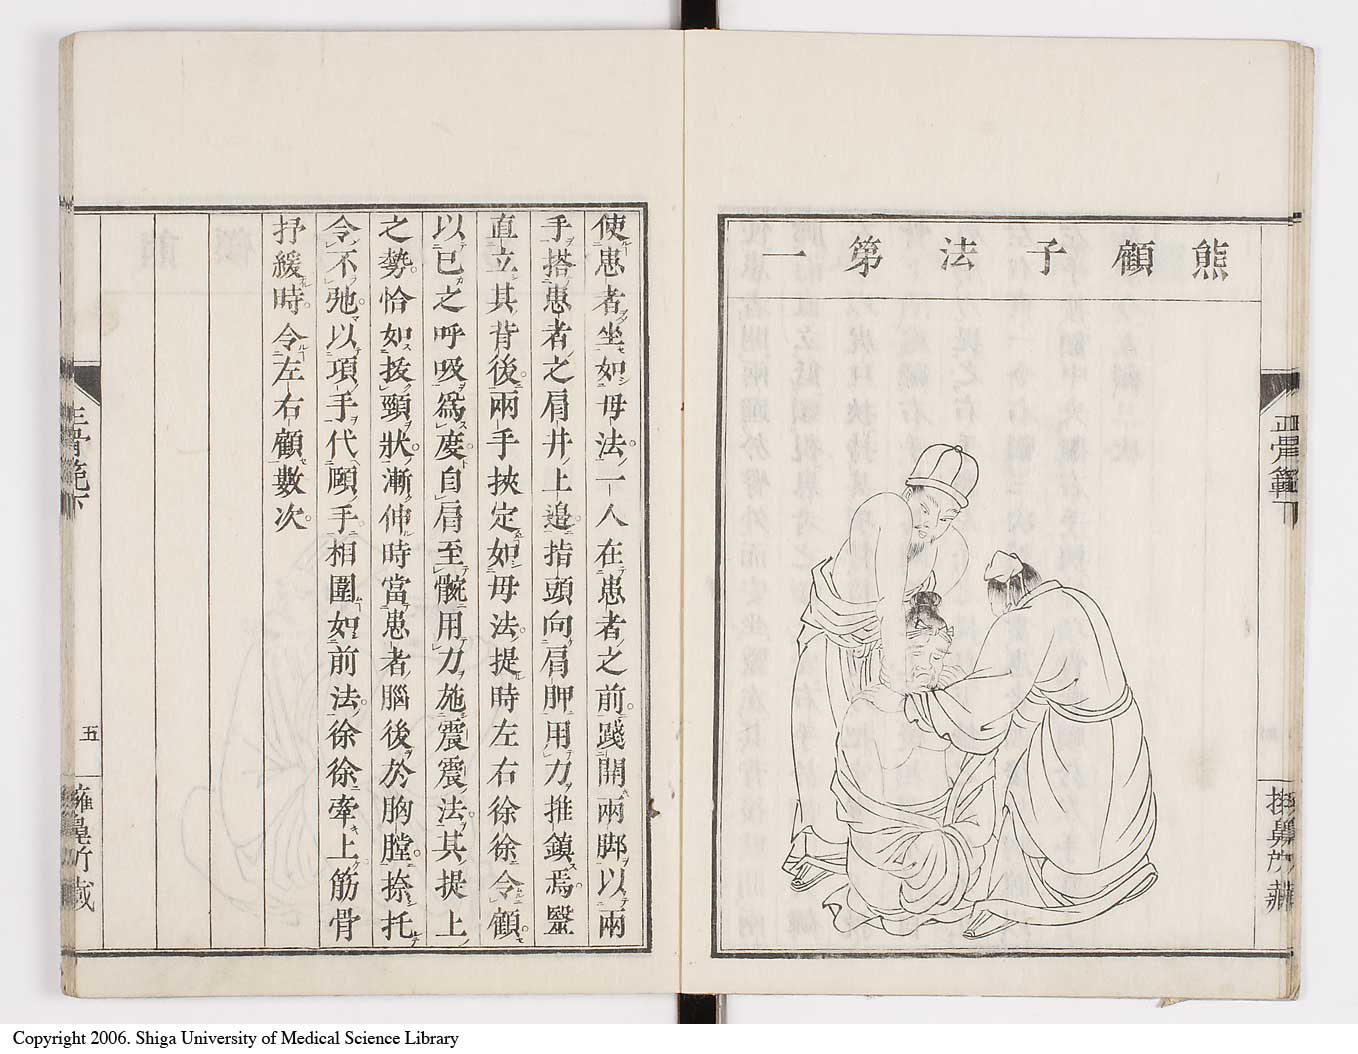 熊顧子法第一
使患者坐如母法一人在患者之前踐開兩脚以兩
手搭患者之肩井上邉指頭向肩胛用力推鎮焉毉
直立其背後兩手挾定如母法提時左右徐徐令顧
以已之呼吸爲度自肩至腕用力施震震法其提上
之勢恰如拔頸狀漸伸時當患者腦後於胸膛捺托
令不弛以項手代頤手相圍如前法徐徐牽上筋骨
抒緩時令左右顧數次
正骨範下
五
Copyright 2006. Shiga University of Medical Science Library